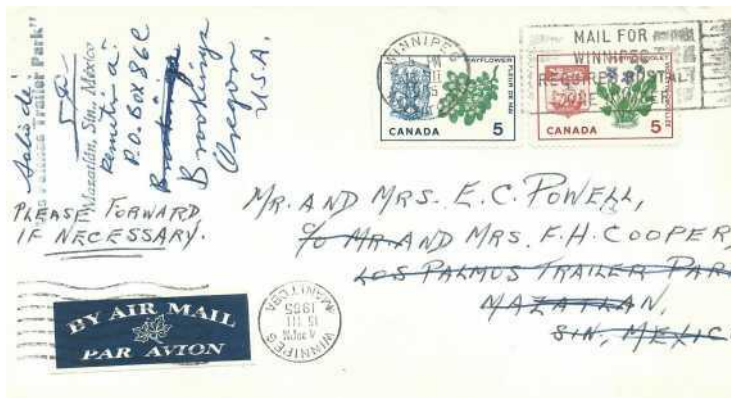 Salió de
"Las Palmas Trailer Park"
Mazatlán, Sin., México
Remetir a:
P.O. BOX 862
Brookings
Brookings
Oregon
U.S.A.
WINNIPEG
MAYFLOWER
FLEUR DE MAI
CANADA 5
CANADA 5
MAIL FOR
WINNIPEG
REQUIRES POSTAL
ZONE NUMBER
PLEASE FORWARD
IF NECESSARY.
MR. AND MRS. E.C. POWELL,
c/o MR. AND MRS. F.H. COOPER,
LOS PALMUS TRAILER PAR
MAZATLAN,
SIN, MEXIC
BY AIR MAIL
PAR AVION
WINNIPEG
4 30PM
15 III
1965
MANITOBA